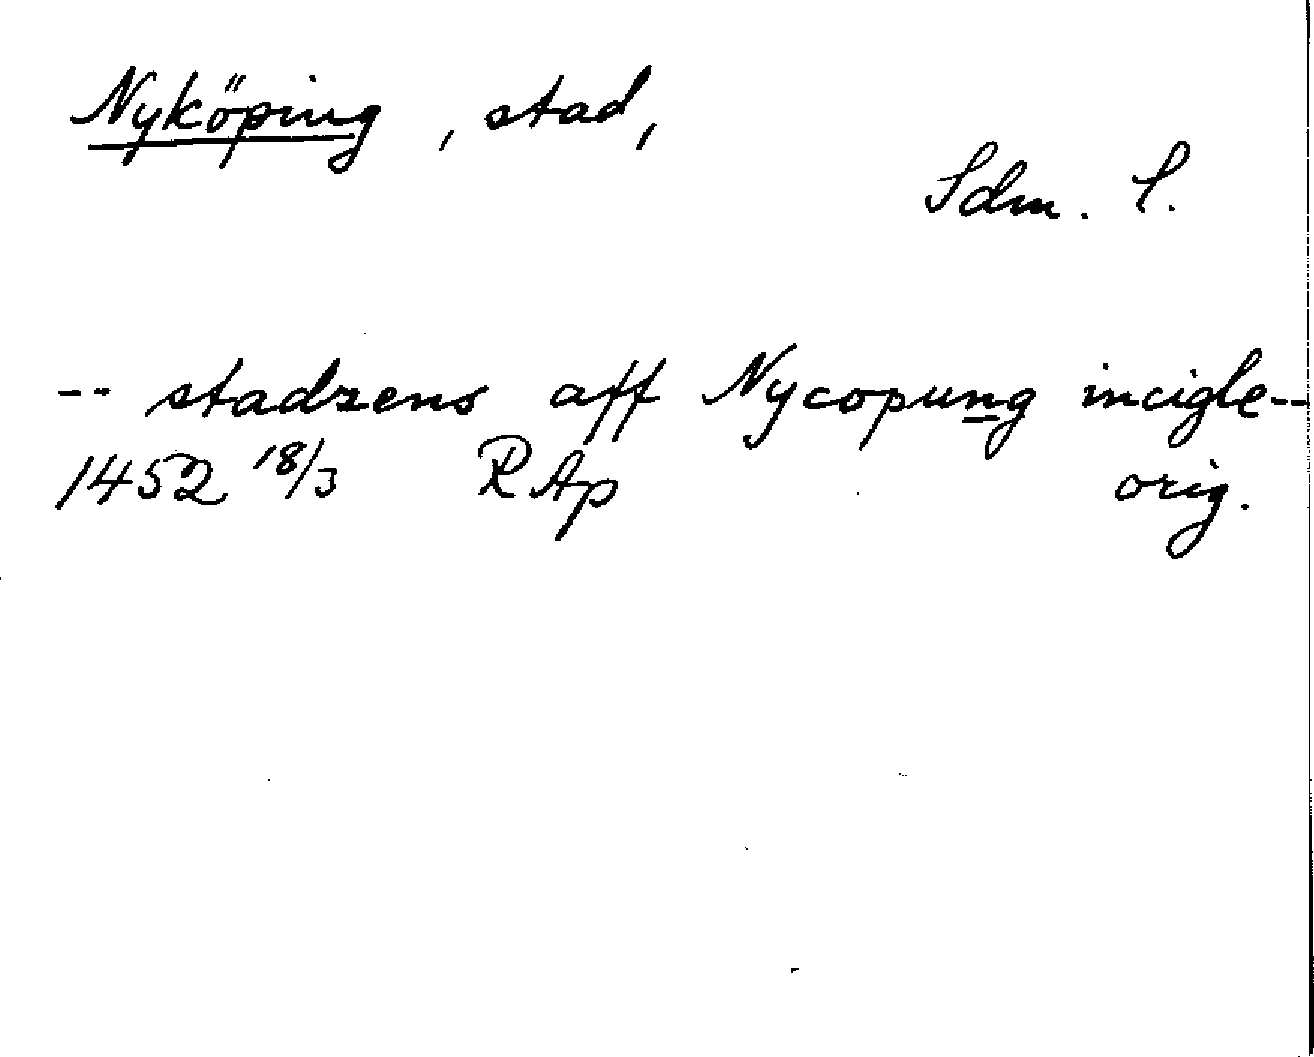 Nyköping, stad,
Sdm. l.
-- stadzens aff Nycopung incigle--
1452 18/3 RAp orig.